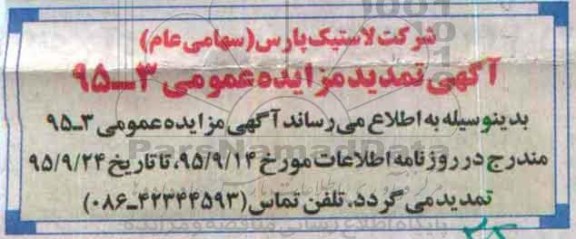 شرکت لاستیک پارس (سهامی عام)
آگهی تمدید مزایده عمومی ۳-۹۵
بدینوسیله به اطلاع می رساند آگهی مزایده عمومی ۳-۹۵
ParsNamadData
مندرج در روزنامه اطلاعات مورخ ۹۵/۹/۱۴، تا تاریخ ۹۵/۹/۲۴
تمدید می گردد. تلفن تماس (۴۲۳۴۴۵۹۳-۰۸۶)
پایگاه اطلاع رسانی مناقصه و مزایده